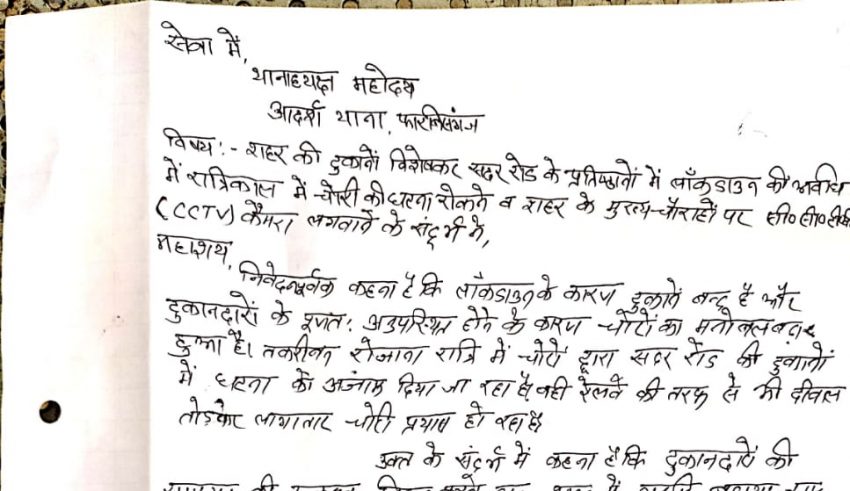 सेवा में,
थानाध्यक्ष महोदय
आदर्श थाना, फारबिसगंज
विषय:- शहर की दुकानों विशेषकर सदर रोड के प्रतिष्ठानों में लॉकडाउन की अवधि
में रात्रिकाल में चोरी की घटना रोकने व शहर के मुख्य चौराहों पर सी०सी०टीवी
(CCTV) कैमरा लगवाने के संदर्भ में,
महाशय,
निवेदनपूर्वक कहना है कि लॉकडाउन के कारण दुकानें बन्द है और
दुकानदारों के पूर्णत: अनुपस्थित होने के कारण चोरों का मनोबल बढ़ा
हुआ है। तकरीबन रोजाना रात्रि में चोरों द्वारा सदर रोड की दुकानों
में घटना को अंजाम दिया जा रहा है, वही रेलवे की तरफ से भी दीवाल
तोड़कर लगातार चोरी प्रयास हो रहा है।
उक्त के संदर्भ में कहना है कि दुकानदारों की